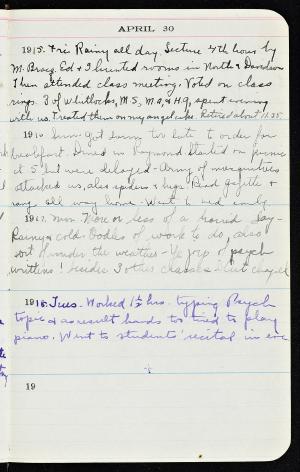 APRIL 30
1915. Fri. Rainy all day. Lecture 4th hour by
M. Bracq. Ed & I hunted rooms in North & Davidson
Then attended class meeting. Voted on class
rings. 3 of Whitlocks, M.S., M.A., & H.G., spent evening
with us. Treated them on my angel cake. Retired about 11.25
1916 Sun. Got down too late to order for
breakfast. Dined in Raymond Started on picnic
at 5 but were delayed - Army of mosquitoes
attacked us, also spiders & bugs. Read &
sang all way home. Went to bed early
1917. Mon More or less of a horrid day-
Rainy & cold. Oodles of work to do, also
sort o' under the weather - Ye of psych
writtens! besides 3 other classes - Cut chapel
1918. Tues. Worked 1½ hrs. typing Psych
topic & as result hands too tired to play
piano. Went to students' recital in eve
19